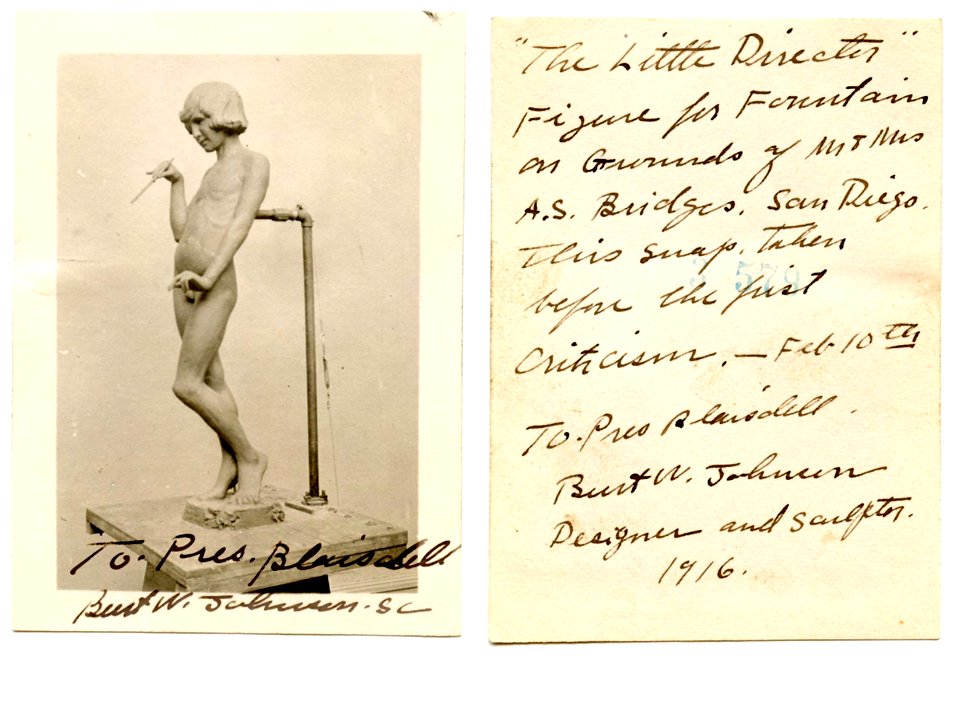 To. Pres. Blaisdell
Burt W. Johnson. Sc
"The Little Director"
Figure for Fountain
on Grounds of Mr & Mrs
A.S. Bridges. San Diego.
This snap. taken
before the first
Criticism. — Feb 10th
To. Pres Blaisdell.
Burt W. Johnson
Designer and Sculptor.
1916.